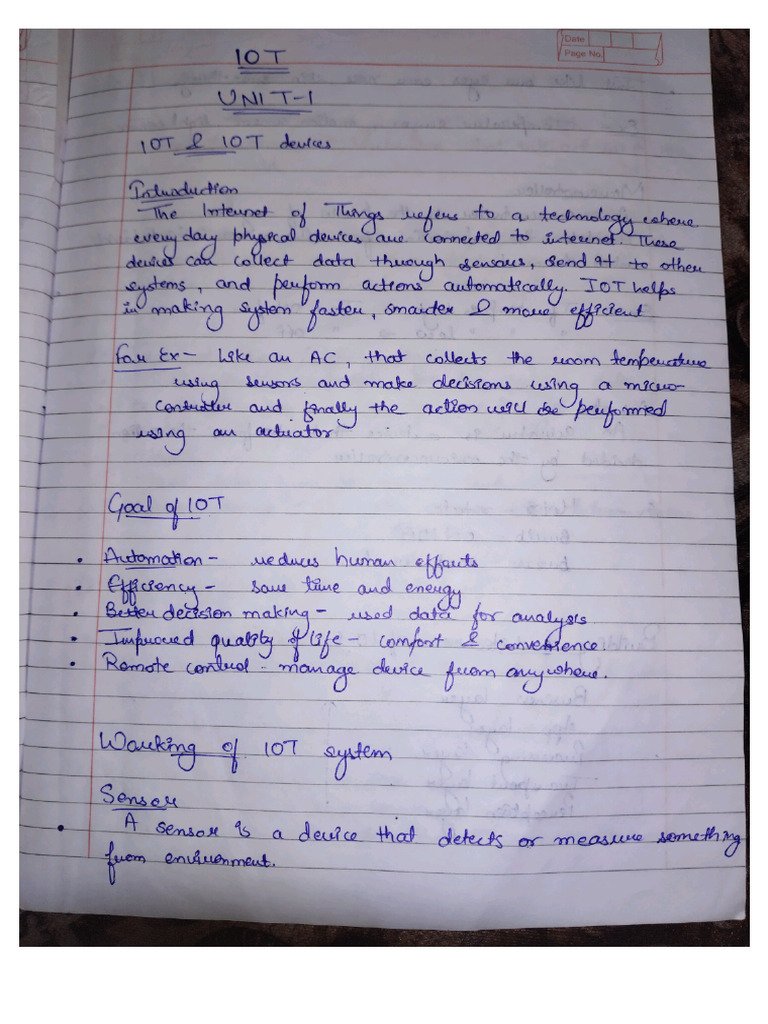 Date
Page No.
IOT
UNIT-1
IOT & IOT devices
Introduction
The Internet of Things refers to a technology where
everyday physical devices are connected to internet. These
devices can collect data through sensors, send it to other
systems, and perform actions automatically. IOT helps
in making system faster, smarter & more efficient
For Ex- Like an AC, that collects the room temperature
using sensors and make decisions using a micro-
controller and finally the action will be performed
using an actuator
Goal of IOT
• Automation - reduces human efforts
• Efficiency - save time and energy
• Better decision making - used data for analysis
• Improved quality of life - comfort & convenience.
• Remote control - manage device from anywhere.
Working of IOT system
Sensor
• A sensor is a device that detects or measure something
from environment.